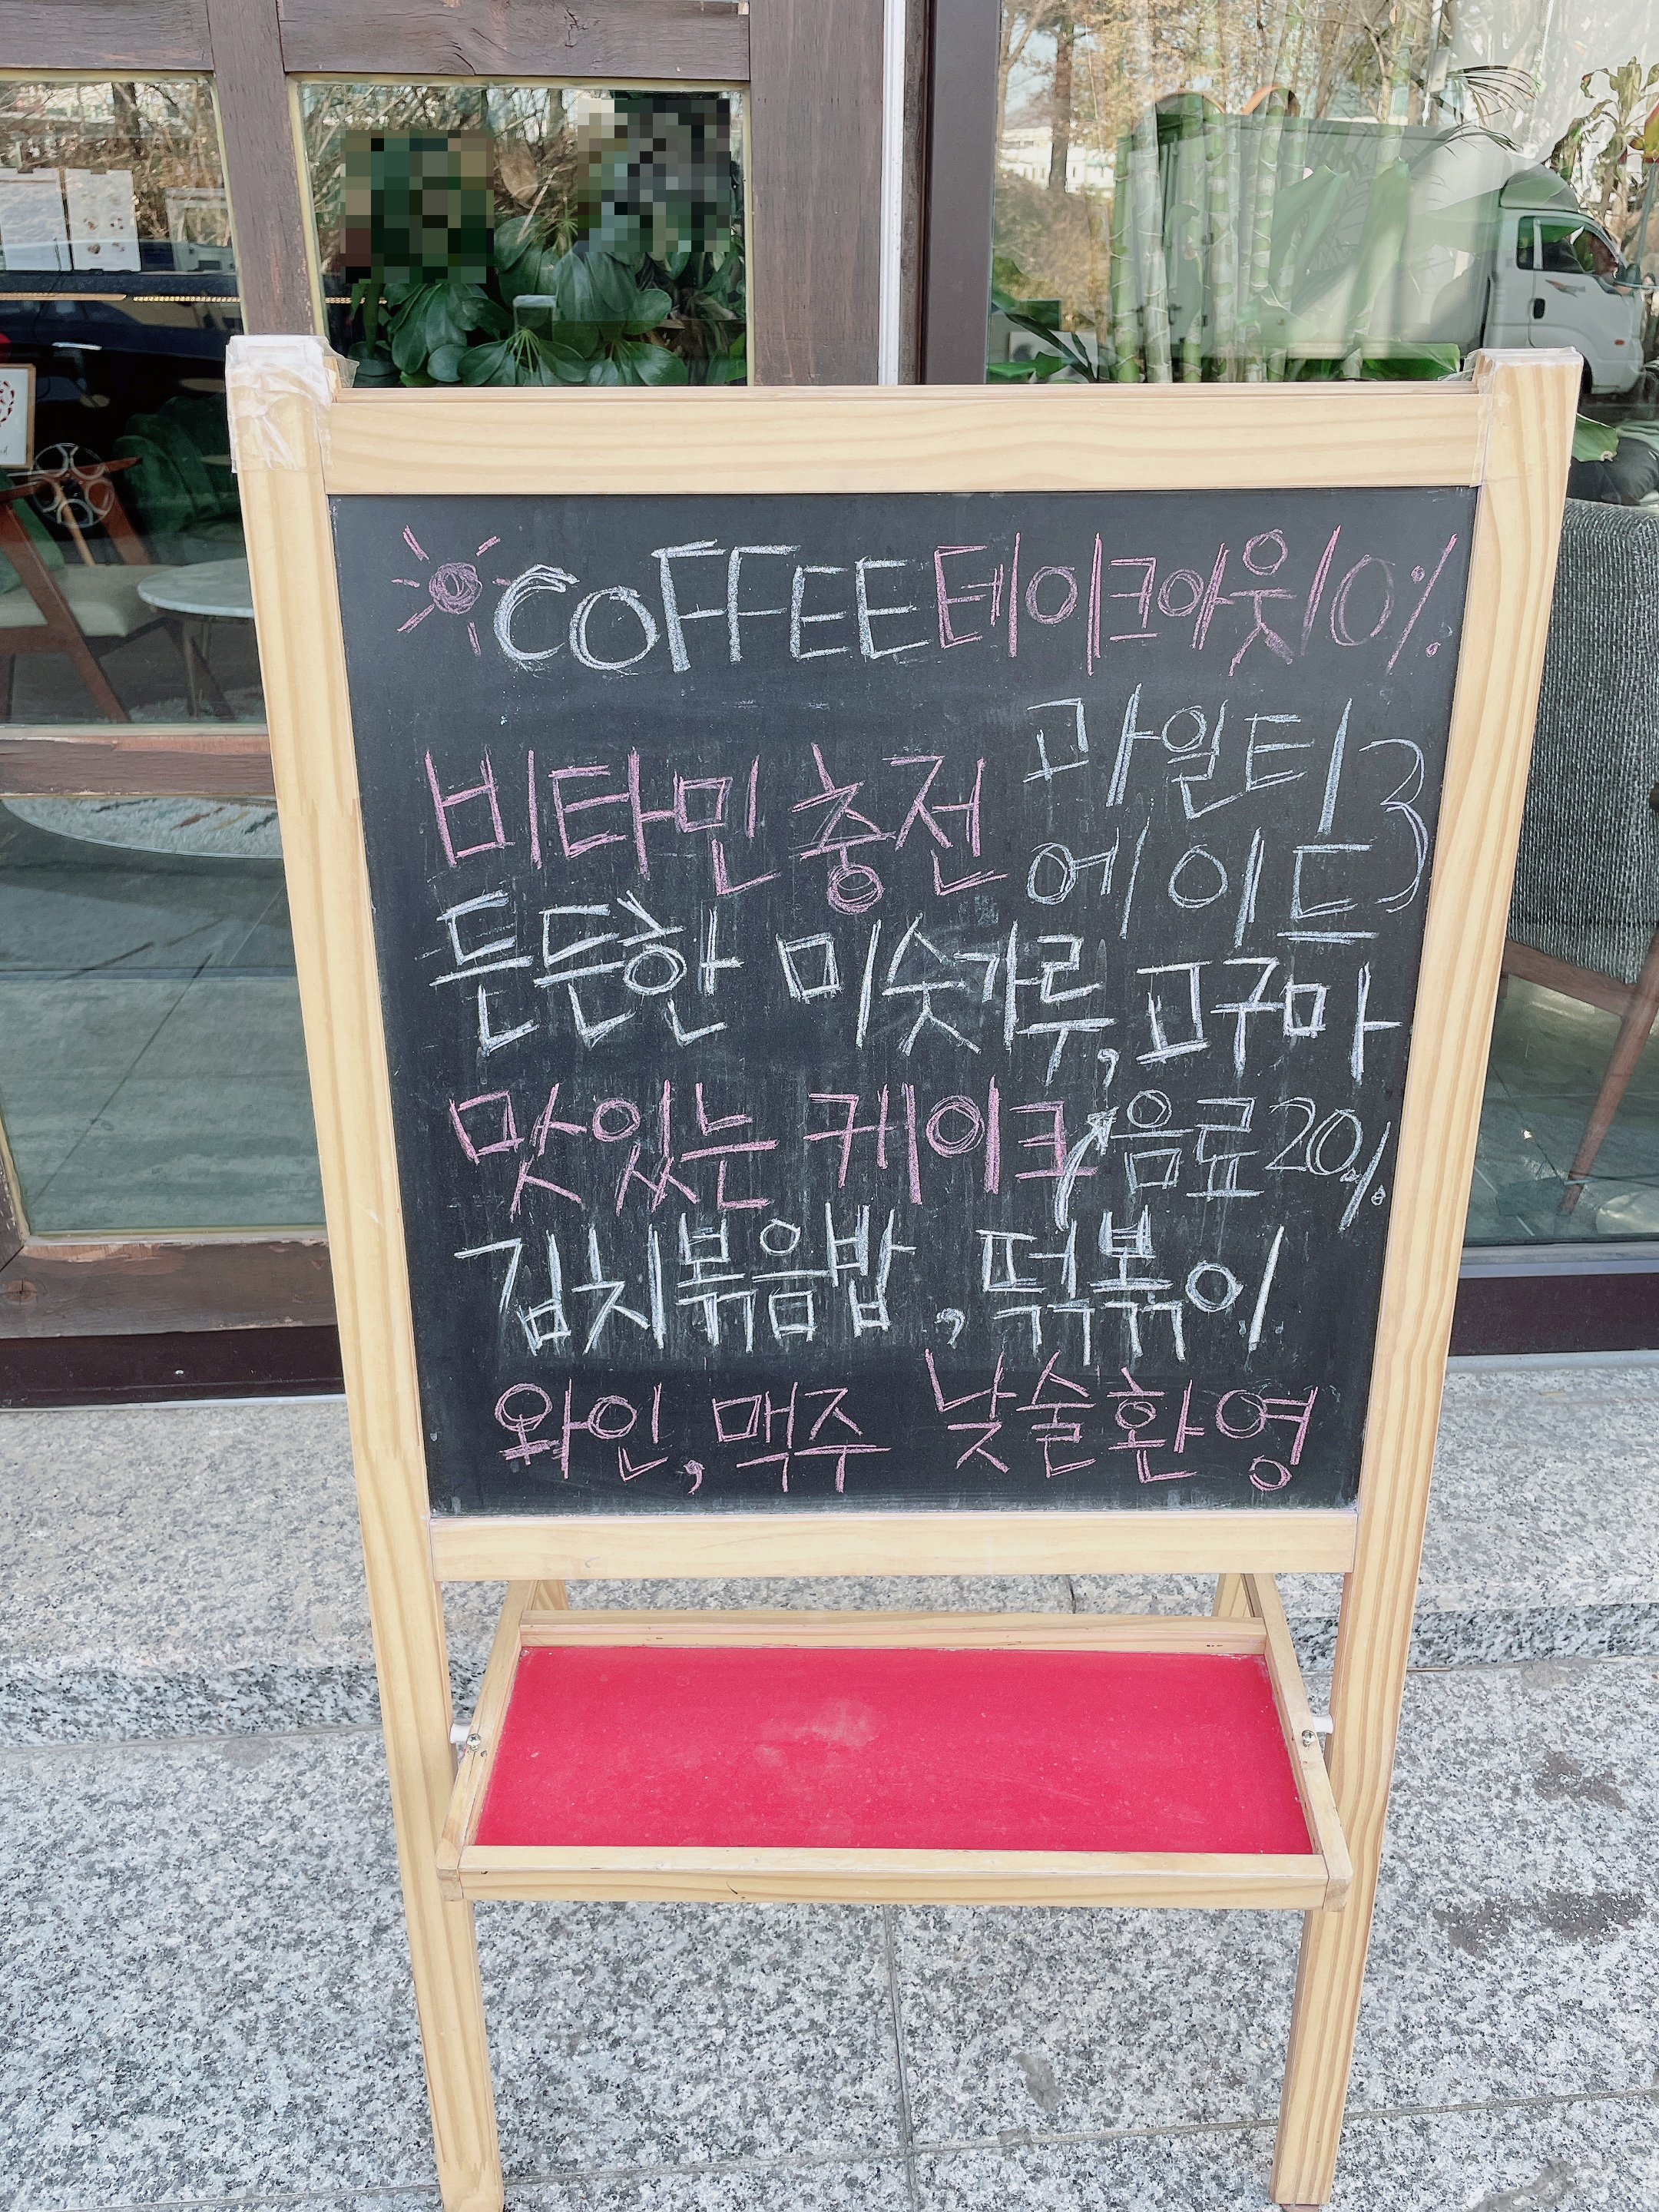 COFFEE 테이크아웃 10%
비타민 충전 과일티
에이드
든든한 미숫가루, 고구마
맛있는 케이크 음료 20%
김치볶음밥, 떡볶이
와인, 맥주 낮술환영